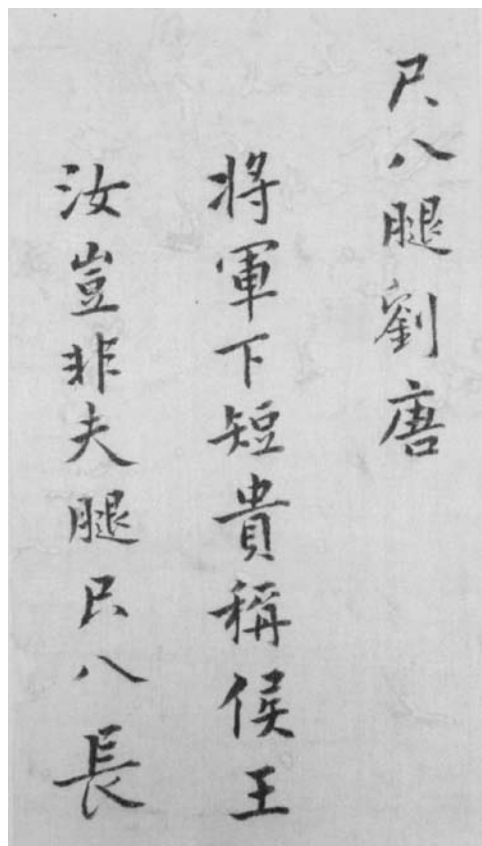 尺八腿劉唐
將軍下短貴稱侯王
汝豈非夫腿尺八長